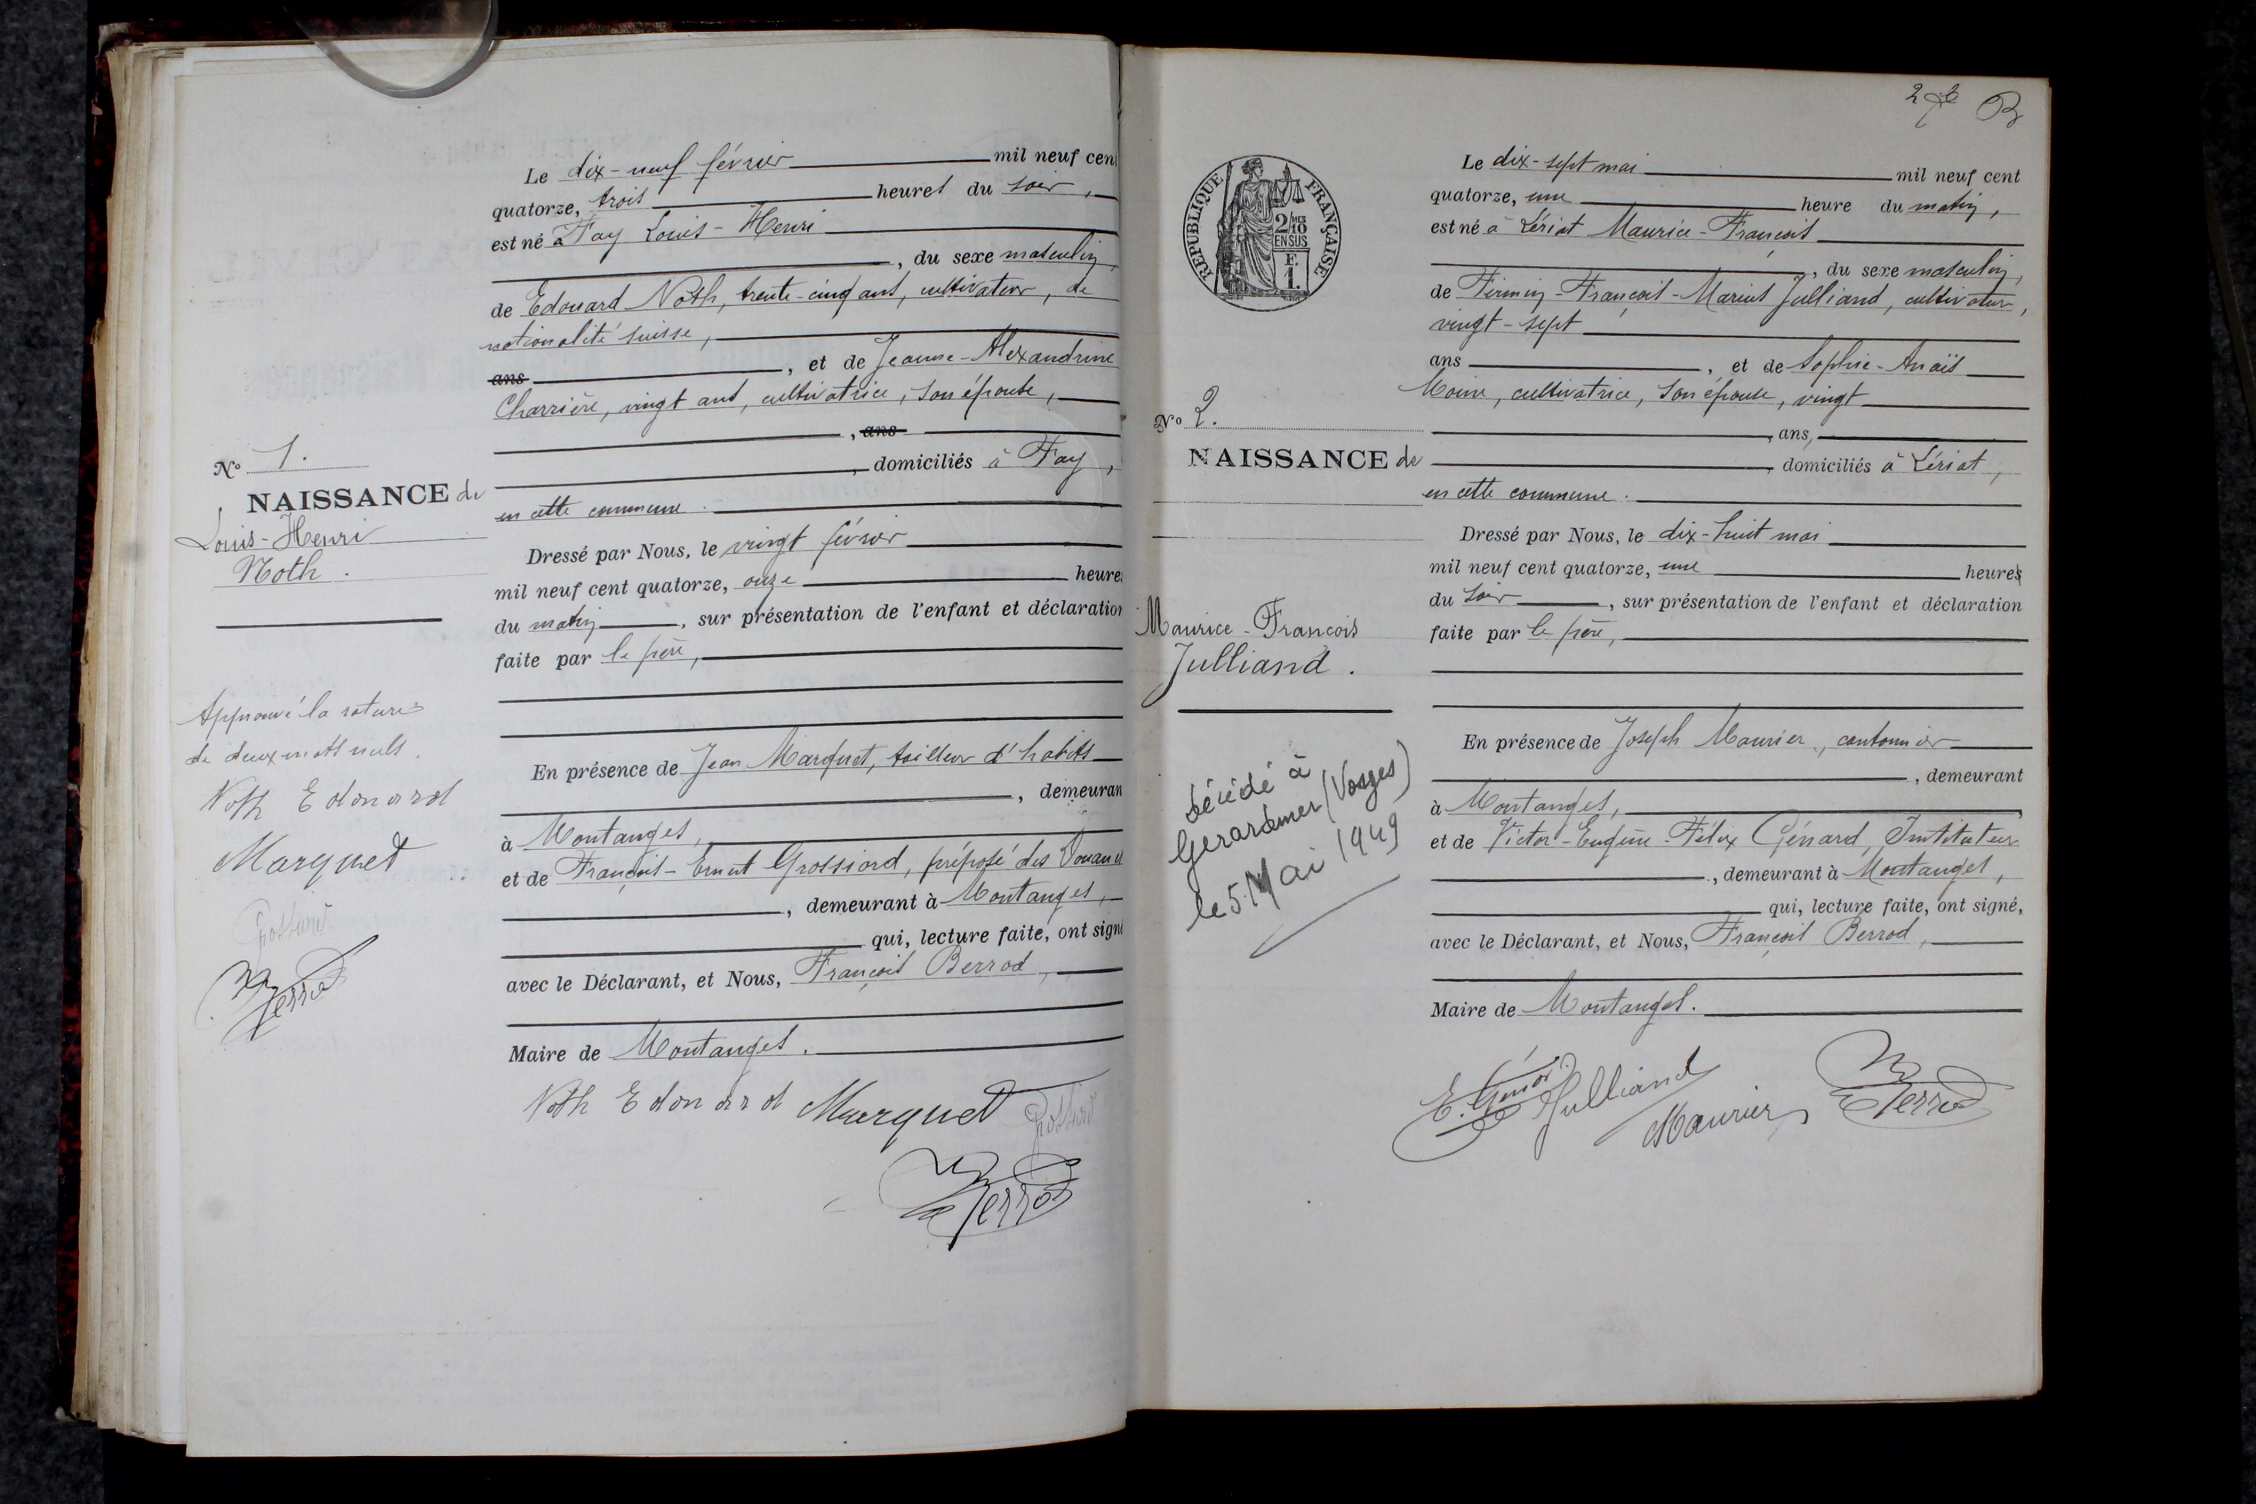 Le dix-neuf février mil neuf cent
quatorze, trois heures du soir,
est né à Fay Louis-Henri
, du sexe masculin,
de Edouard Noth, trente-cinq ans, cultivateur, de
nationalité suisse,
ans, et de Jeanne-Alexandrine
Charrière, vingt ans, cultivatrice, son épouse,
, ans
, domiciliés à Fay,
en cette commune.
Dressé par Nous, le vingt février
mil neuf cent quatorze, onze heures
du matin, sur présentation de l'enfant et déclaration
faite par le père,
En présence de Jean Marquet, tailleur d'habits
, demeuran
à Montanges,
et de François-Ernest Grossiord, préposé des Douanes
, demeurant à Montanges,
qui, lecture faite, ont signé
avec le Déclarant, et Nous, François Berrod,
Maire de Montanges.
Noth Edouard Marquet Grossiord
Berrod
No 1.
NAISSANCE de
Louis-Henri
Noth.
Approuvé la rature
de deux mots nuls.
Noth Edouard
Marquet
Grossiord
Berrod
2
RÉPUBLIQUE FRANÇAISE
2/10
EN SUS
F.
1.
No 2.
NAISSANCE de
Maurice-François
Julliand.
Décédé à
Gerardmer (Vosges)
le 5 Mai 1949
Le dix-sept mai mil neuf cent
quatorze, une heure du matin,
est né à Lériat Maurice-François
, du sexe masculin,
de Firmin-François-Marius Julliand, cultivateur,
vingt-sept
ans, et de Sophie-Anaïs
Moine, cultivatrice, son épouse, vingt
, ans,
, domiciliés à Lériat,
en cette commune.
Dressé par Nous, le dix-huit mai
mil neuf cent quatorze, une heures
du soir, sur présentation de l'enfant et déclaration
faite par le père,
En présence de Joseph Maurier, cantonnier
, demeurant
à Montanges,
et de Victor-Eugène-Félix Génard, Instituteur
, demeurant à Montanges,
qui, lecture faite, ont signé,
avec le Déclarant, et Nous, François Berrod,
Maire de Montanges.
E. Génard Julliand Maurier Berrod